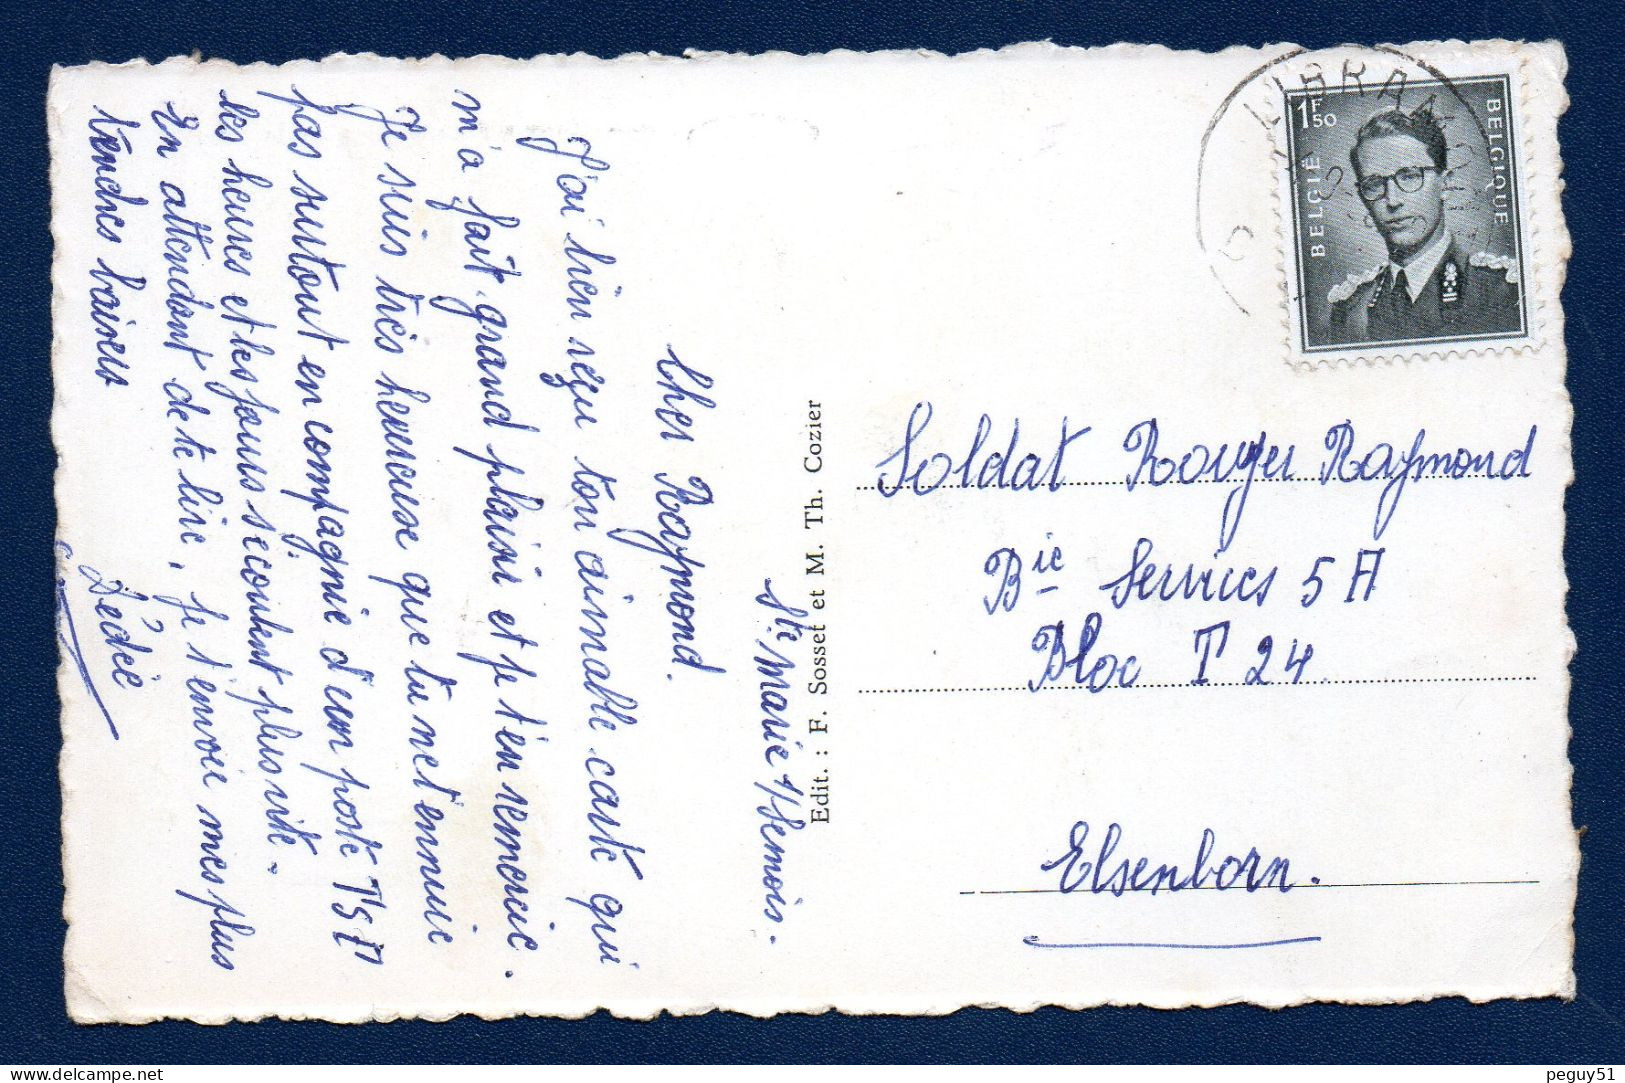 Ste Marie s/Semois.
Cher Raymond.
J'ai bien reçu ton aimable carte qui
m'a fait grand plaisir et je t'en remercie.
Je suis très heureuse que tu ne t'ennuie
pas surtout en compagnie d'un poste TSA
les heures et les jours s'écoulent plus vite.
En attendant de te lire, je t'envoie mes plus
tendres baisers
Dédée
Edit. : F. Sosset et M. Th. Cozier
BELGIË
BELGIQUE
1F50
Soldat Rouyer Raymond
Bie Services 5 A
Bloc T 24
Elsenborn.
delcampe.net
peguy51